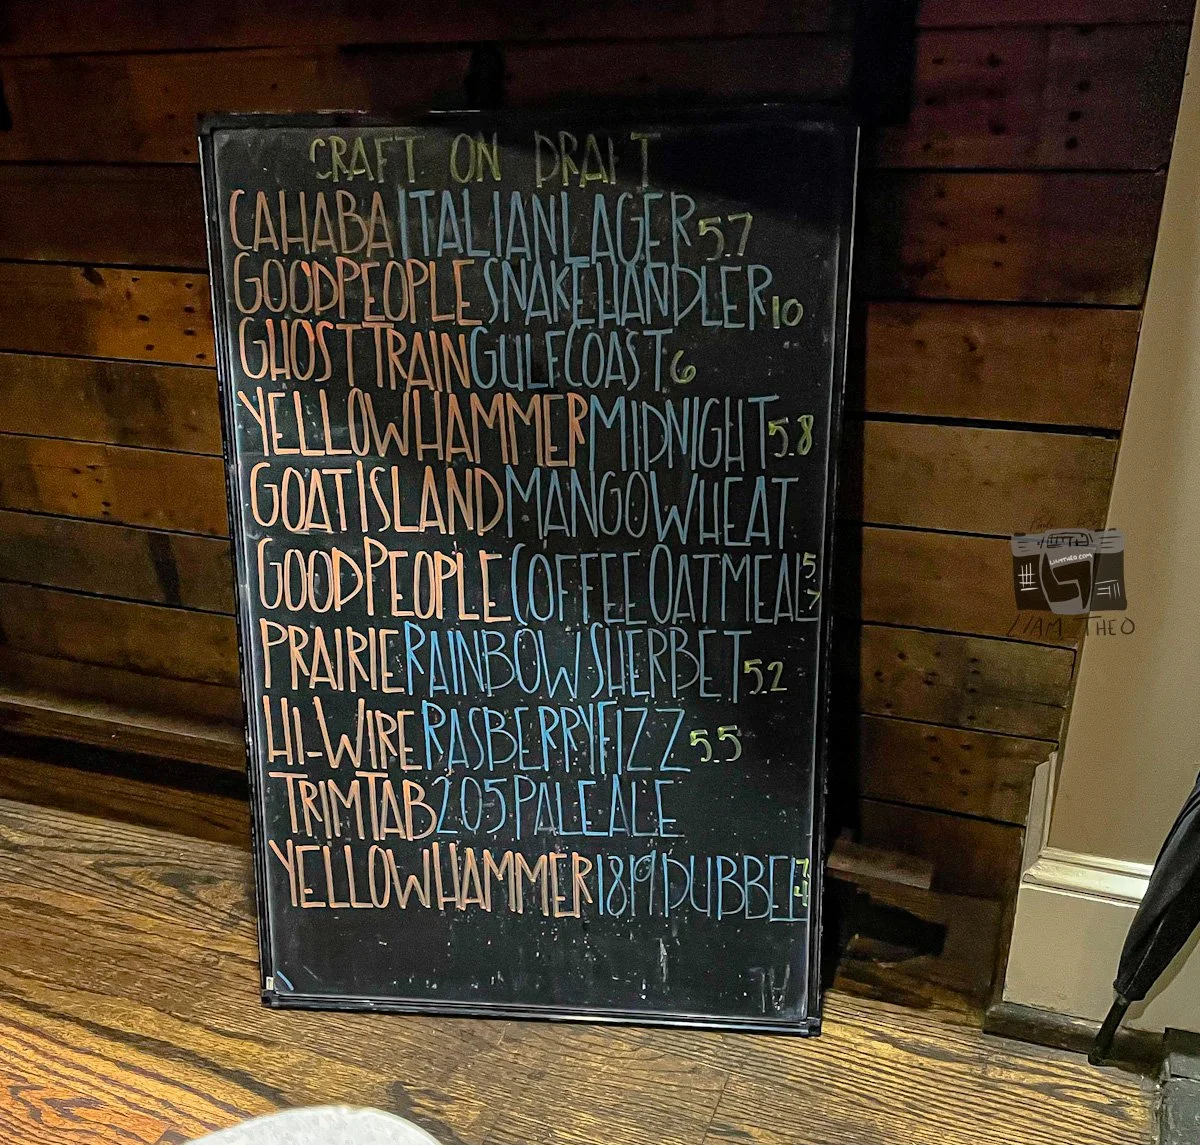 CRAFT ON DRAFT
CAHABA ITALIAN LAGER 5.7
GOOD PEOPLE SNAKE HANDLER 10
GHOST TRAIN GULF COAST 6
YELLOWHAMMER MIDNIGHT 5.8
GOAT ISLAND MANGO WHEAT
GOOD PEOPLE COFFEE OATMEAL 5.7
PRAIRIE RAINBOW SHERBET 5.2
HI-WIRE RASBERRY FIZZ 5.5
TRIMTAB 205 PALE ALE
YELLOWHAMMER 1819 DUBBEL 7.4
LIAMTHEO.COM
LIAM THEO